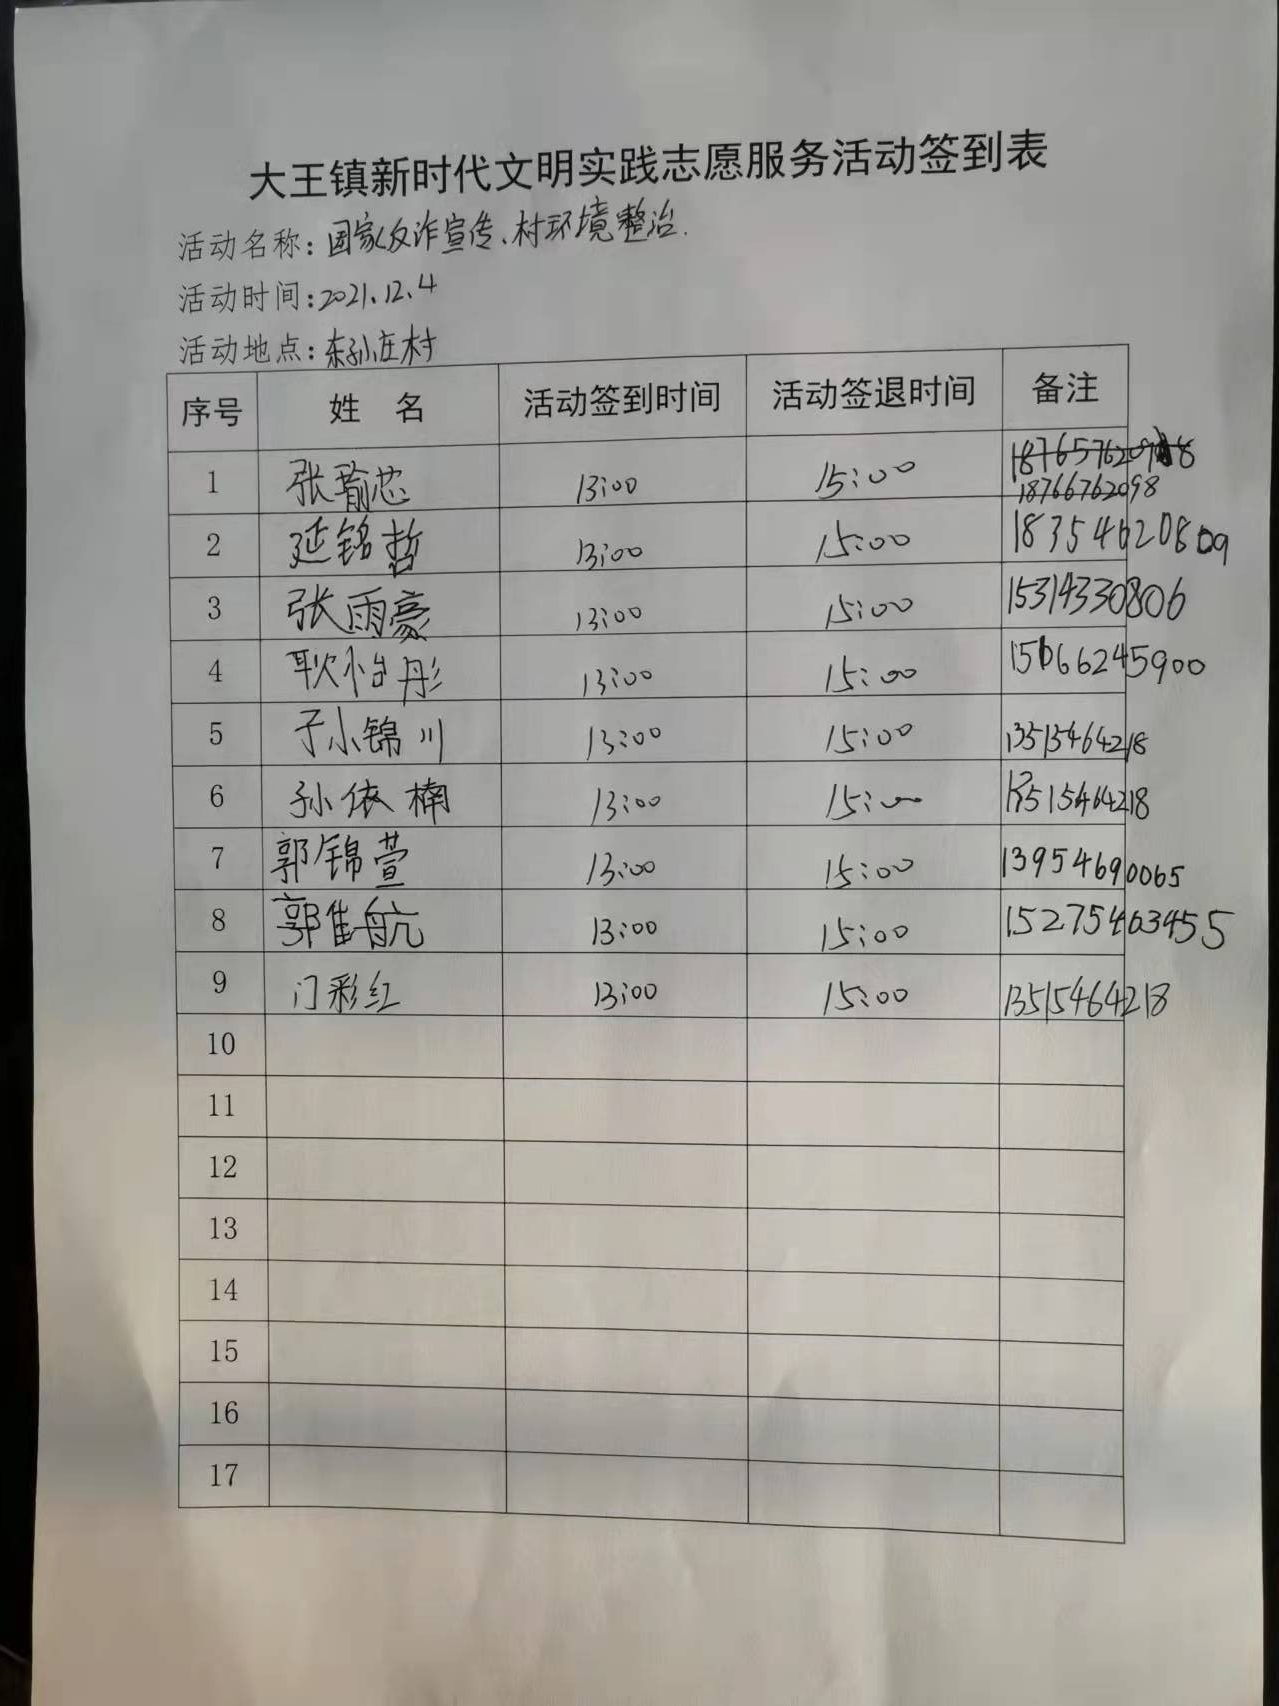 大王镇新时代文明实践志愿服务活动签到表
活动名称:国家反诈宣传、村环境整治.
活动时间:2021.12.4
活动地点:东孙庄村
序号 姓 名 活动签到时间 活动签退时间 备注
1 张瑜芯 13:00 15:00
18766762098
2 延铭哲 13:00 15:00 18354620809
3 张雨豪 13:00 15:00 15314330806
4 耿怡彤 13:00 15:00 15066245900
5 于小锦川 13:00 15:00 13515464218
6 孙依楠 13:00 15:00 13515464218
7 郭锦萱 13:00 15:00 13954690065
8 郭佳航 13:00 15:00 15275463455
9 门彩红 13:00 15:00 13515464218
10
11
12
13
14
15
16
17